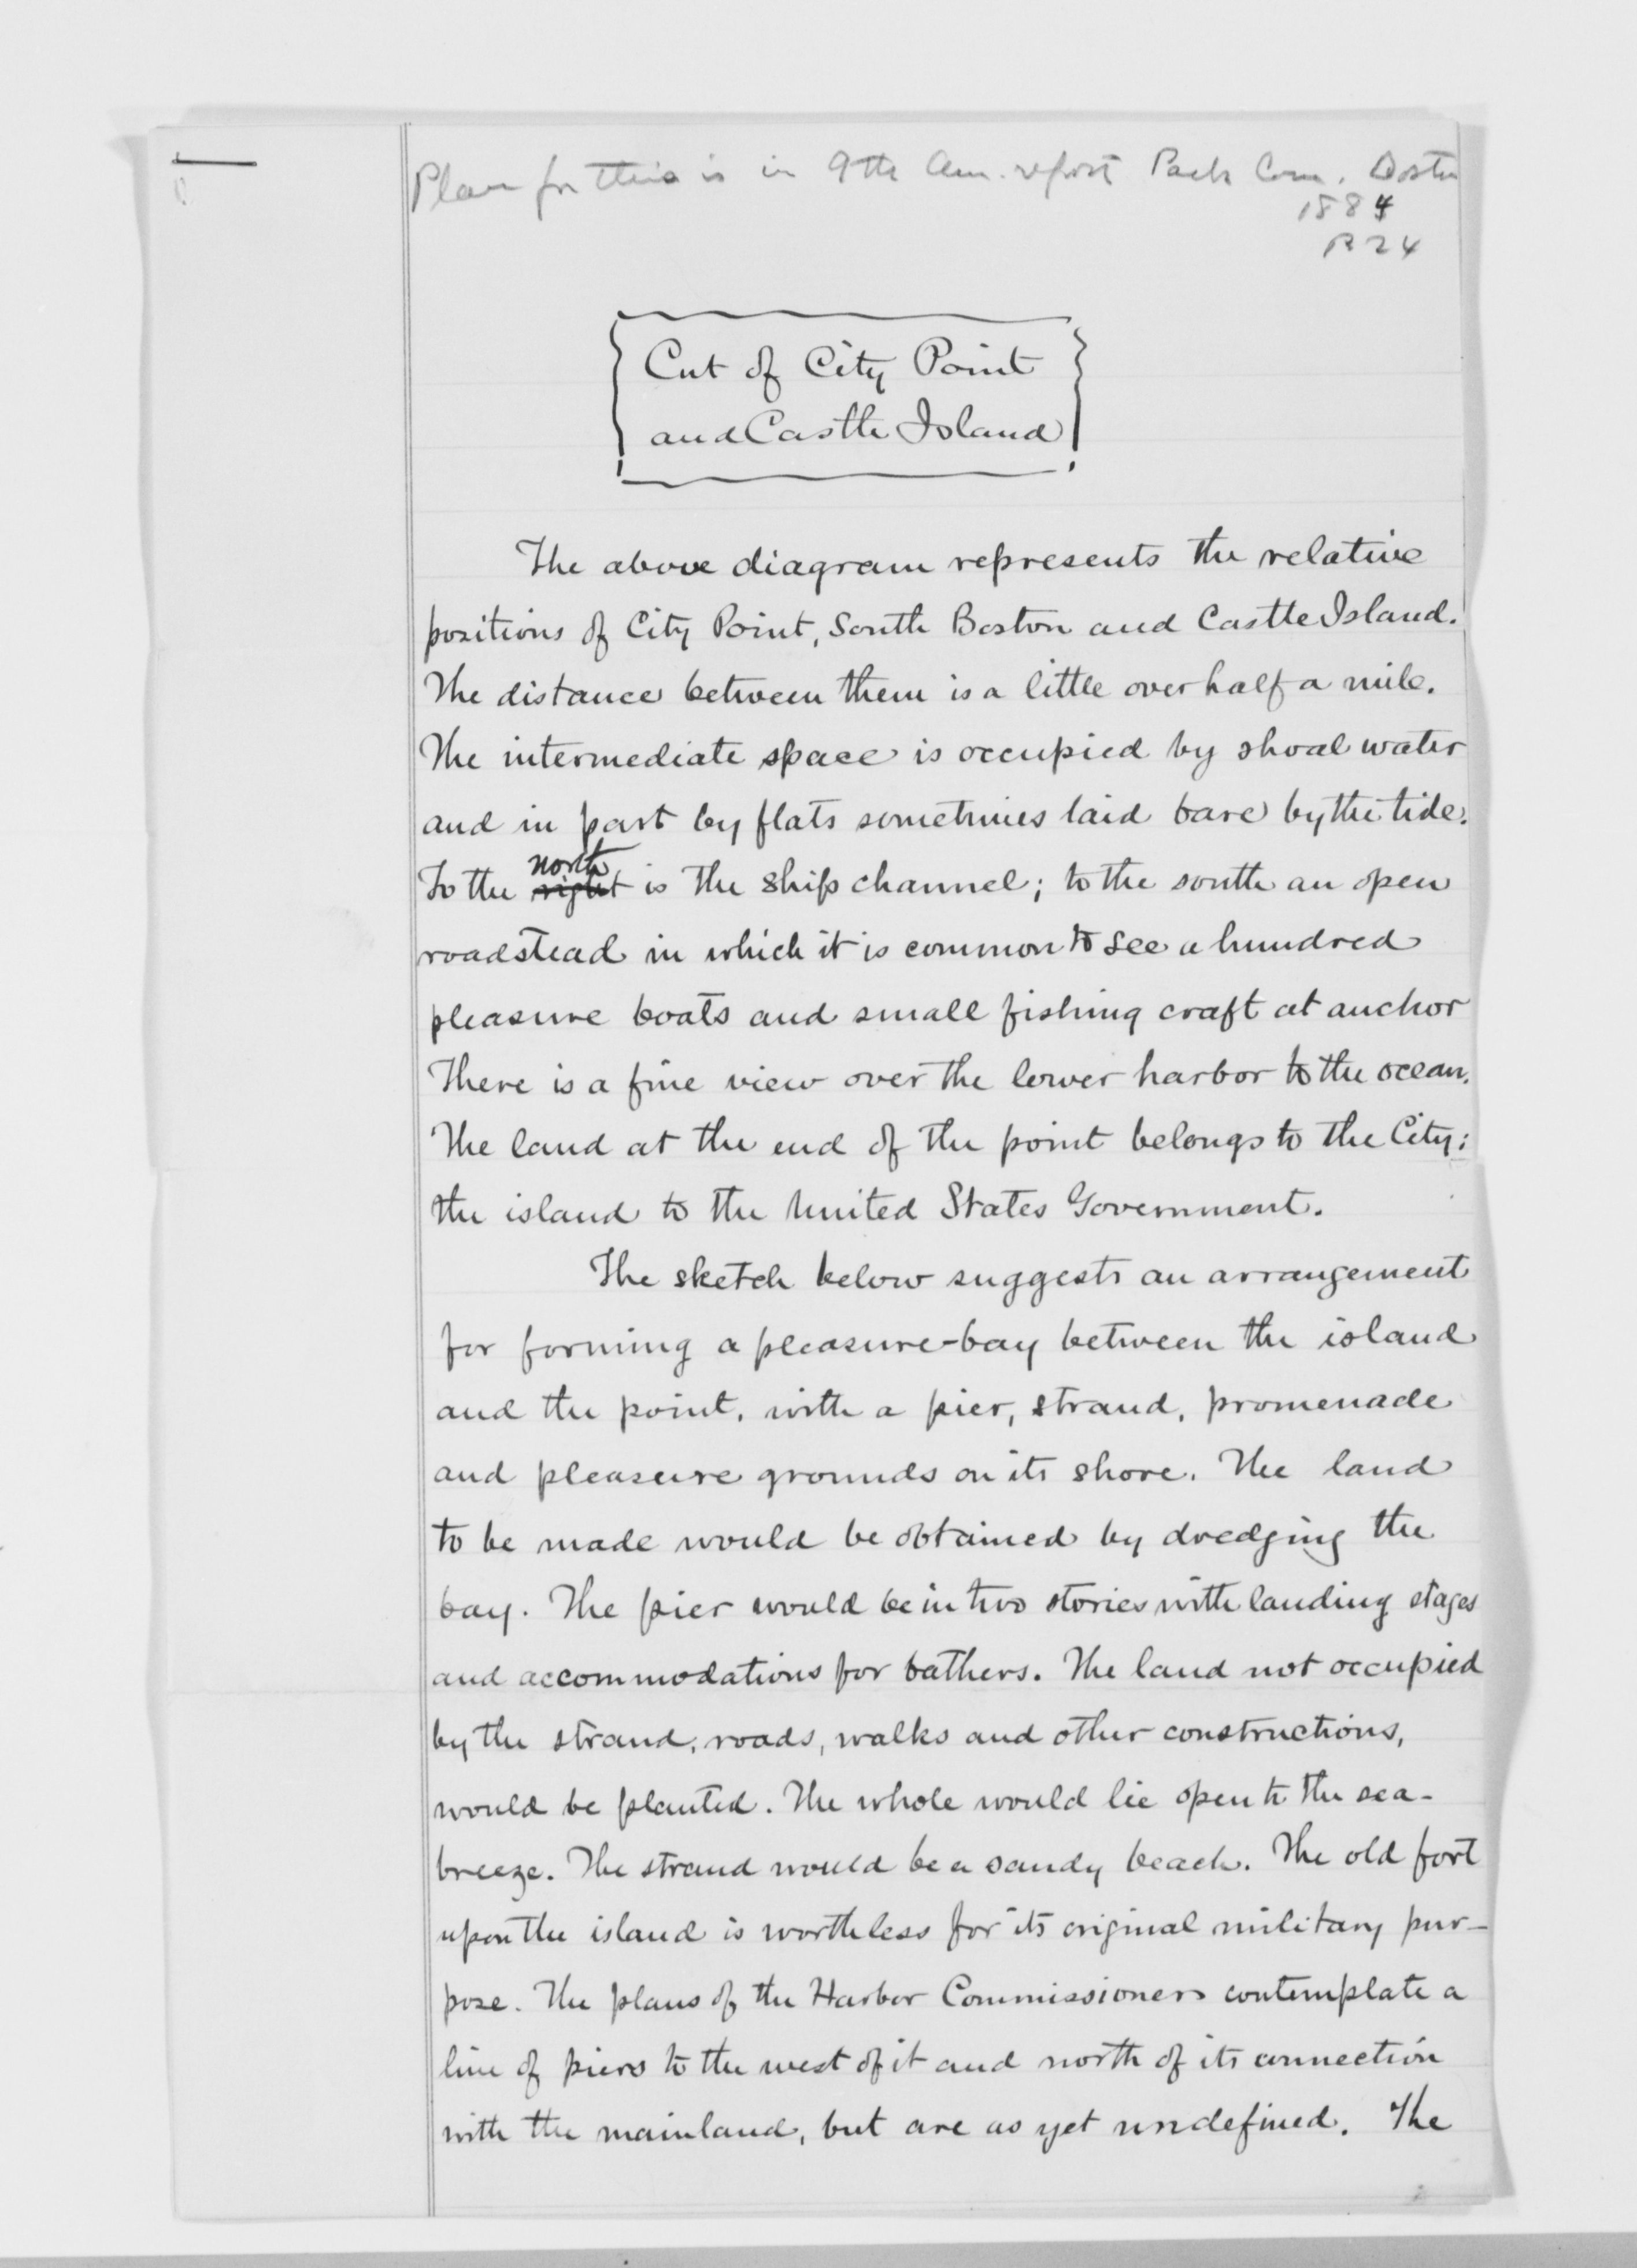 Plan for this is in 9th Ann. report Park Com. Boston
1884
P. 24
Cut of City Point
and Castle Island
The above diagram represents the relative
positions of City Point, South Boston and Castle Island.
The distance between them is a little over half a mile.
The intermediate space is occupied by shoal water
and in part by flats sometimes laid bare by the tide.
north
To the right is the ship channel; to the south an open
roadstead in which it is common to see a hundred
pleasure boats and small fishing craft at anchor
There is a fine view over the lower harbor to the ocean.
The land at the end of the point belongs to the City;
the island to the United States Government.
The sketch below suggests an arrangement
for forming a pleasure-bay between the island
and the point, with a pier, strand, promenade
and pleasure grounds on its shore. The land
to be made would be obtained by dredging the
bay. The pier would be in two stories with landing stages
and accommodations for bathers. The land not occupied
by the strand, roads, walks and other constructions,
would be planted. The whole would lie open to the sea-
breeze. The strand would be a sandy beach. The old fort
upon the island is worthless for its original military pur-
pose. The plans of the Harbor Commissioners contemplate a
line of piers to the west of it and north of its connection
with the mainland, but are as yet undefined. The